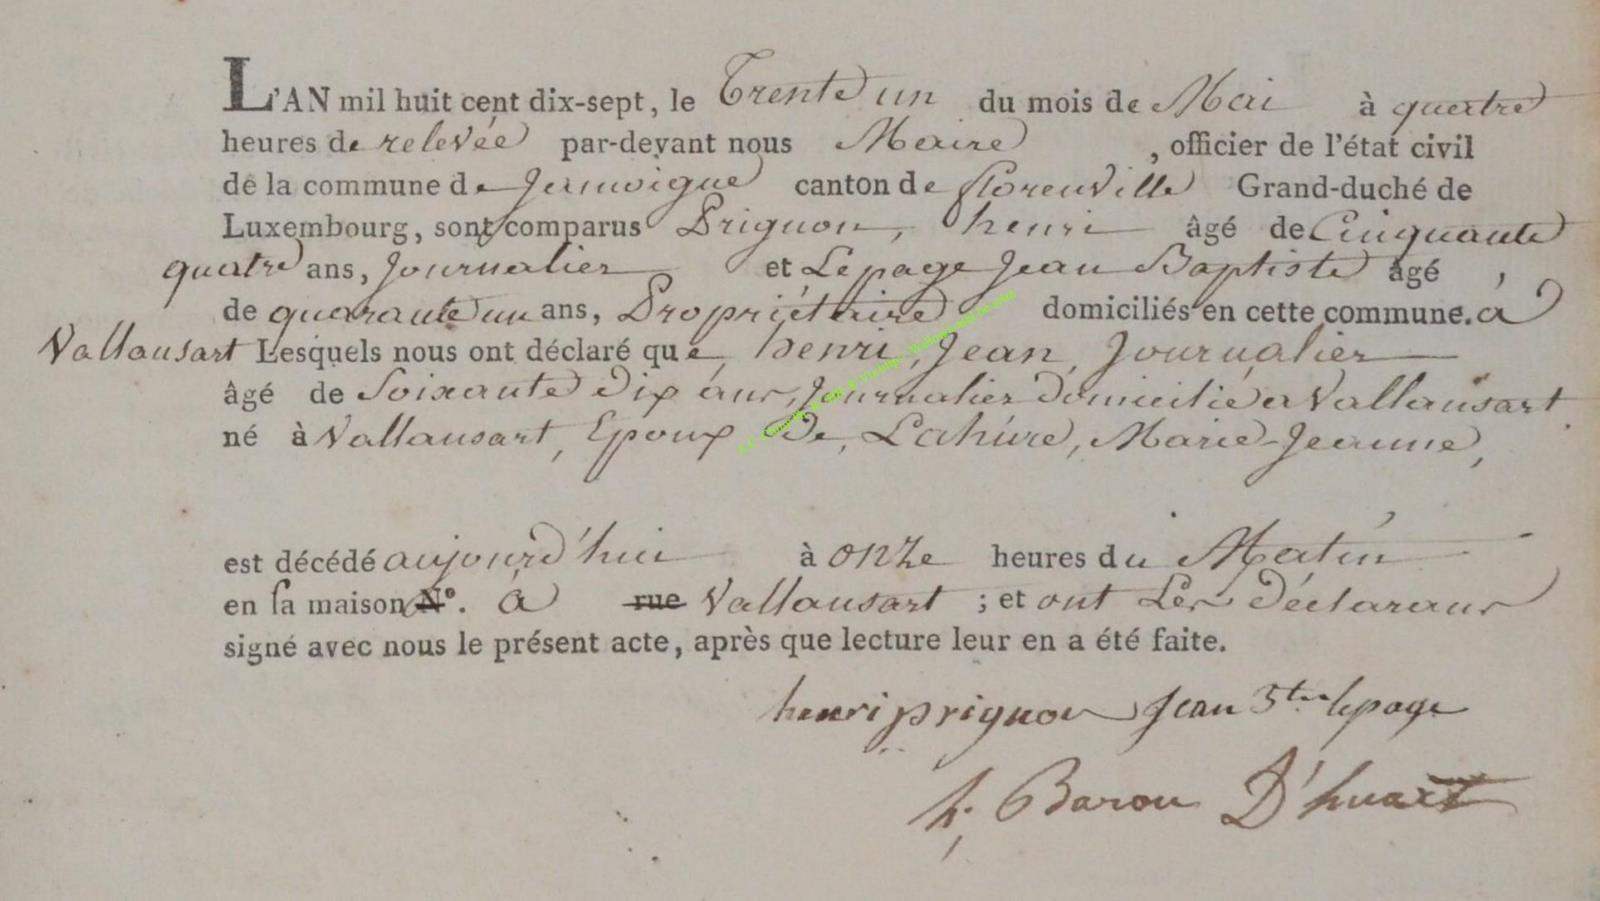 L'AN mil huit cent dix-sept, le Trente un du mois de Mai à quatre
heures de relevée par-devant nous Maire , officier de l'état civil
de la commune de Jamoigne canton de florenville Grand-duché de
Luxembourg, sont comparus Prignon, henri âgé de Cinquante
quatre ans, Journalier et Lepage Jean Baptiste âgé
de quarante un ans, Propriétaire domiciliés en cette commune. à
Vallansart Lesquels nous ont déclaré que henri, Jean, Journalier
âgé de Soixante dix ans, Journalier domicilié a Vallansart
né à Vallansart, Epoux De, Lahure, Marie-Jeanne,
est décédé aujourd'hui à onze heures du Matin
en sa maison N°. à rue Vallansart ; et ont Les Déclarans
signé avec nous le présent acte, après que lecture leur en a été faite.
henri prignon Jean Bte lepage
h. Baron D'huart